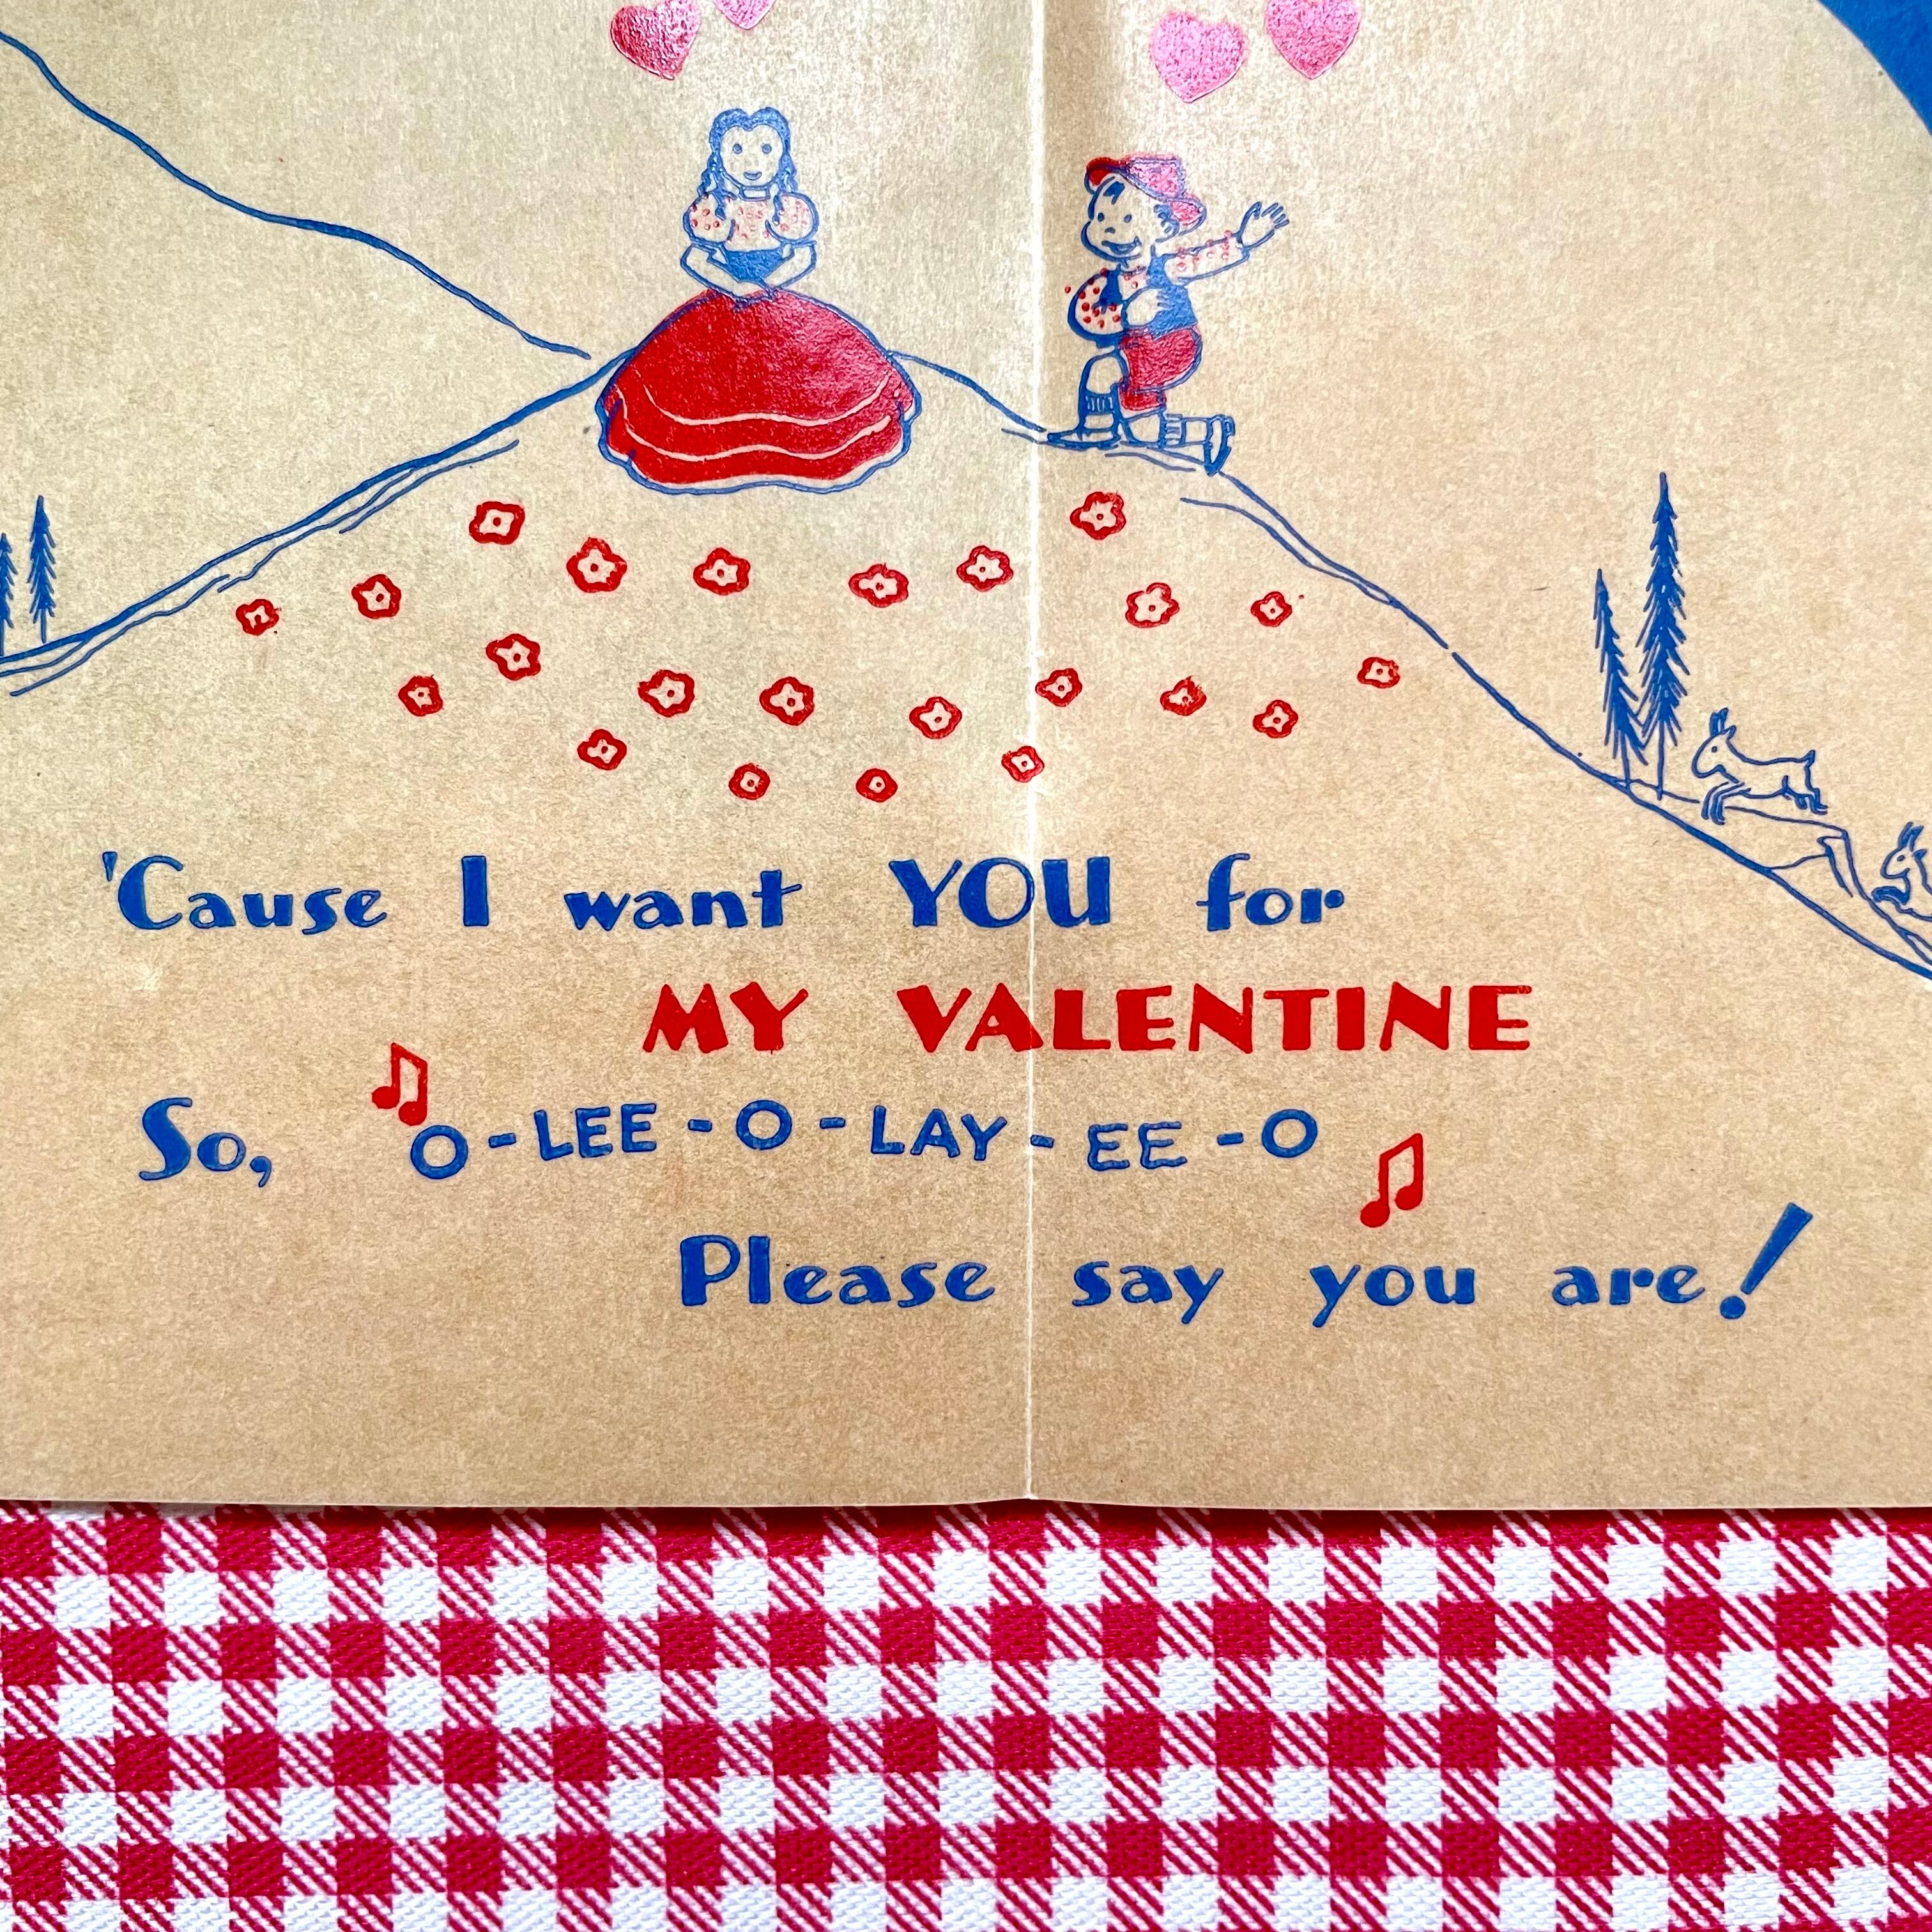 'Cause I want YOU for
MY VALENTINE
So, O-LEE-O-LAY-EE-O
Please say you are!